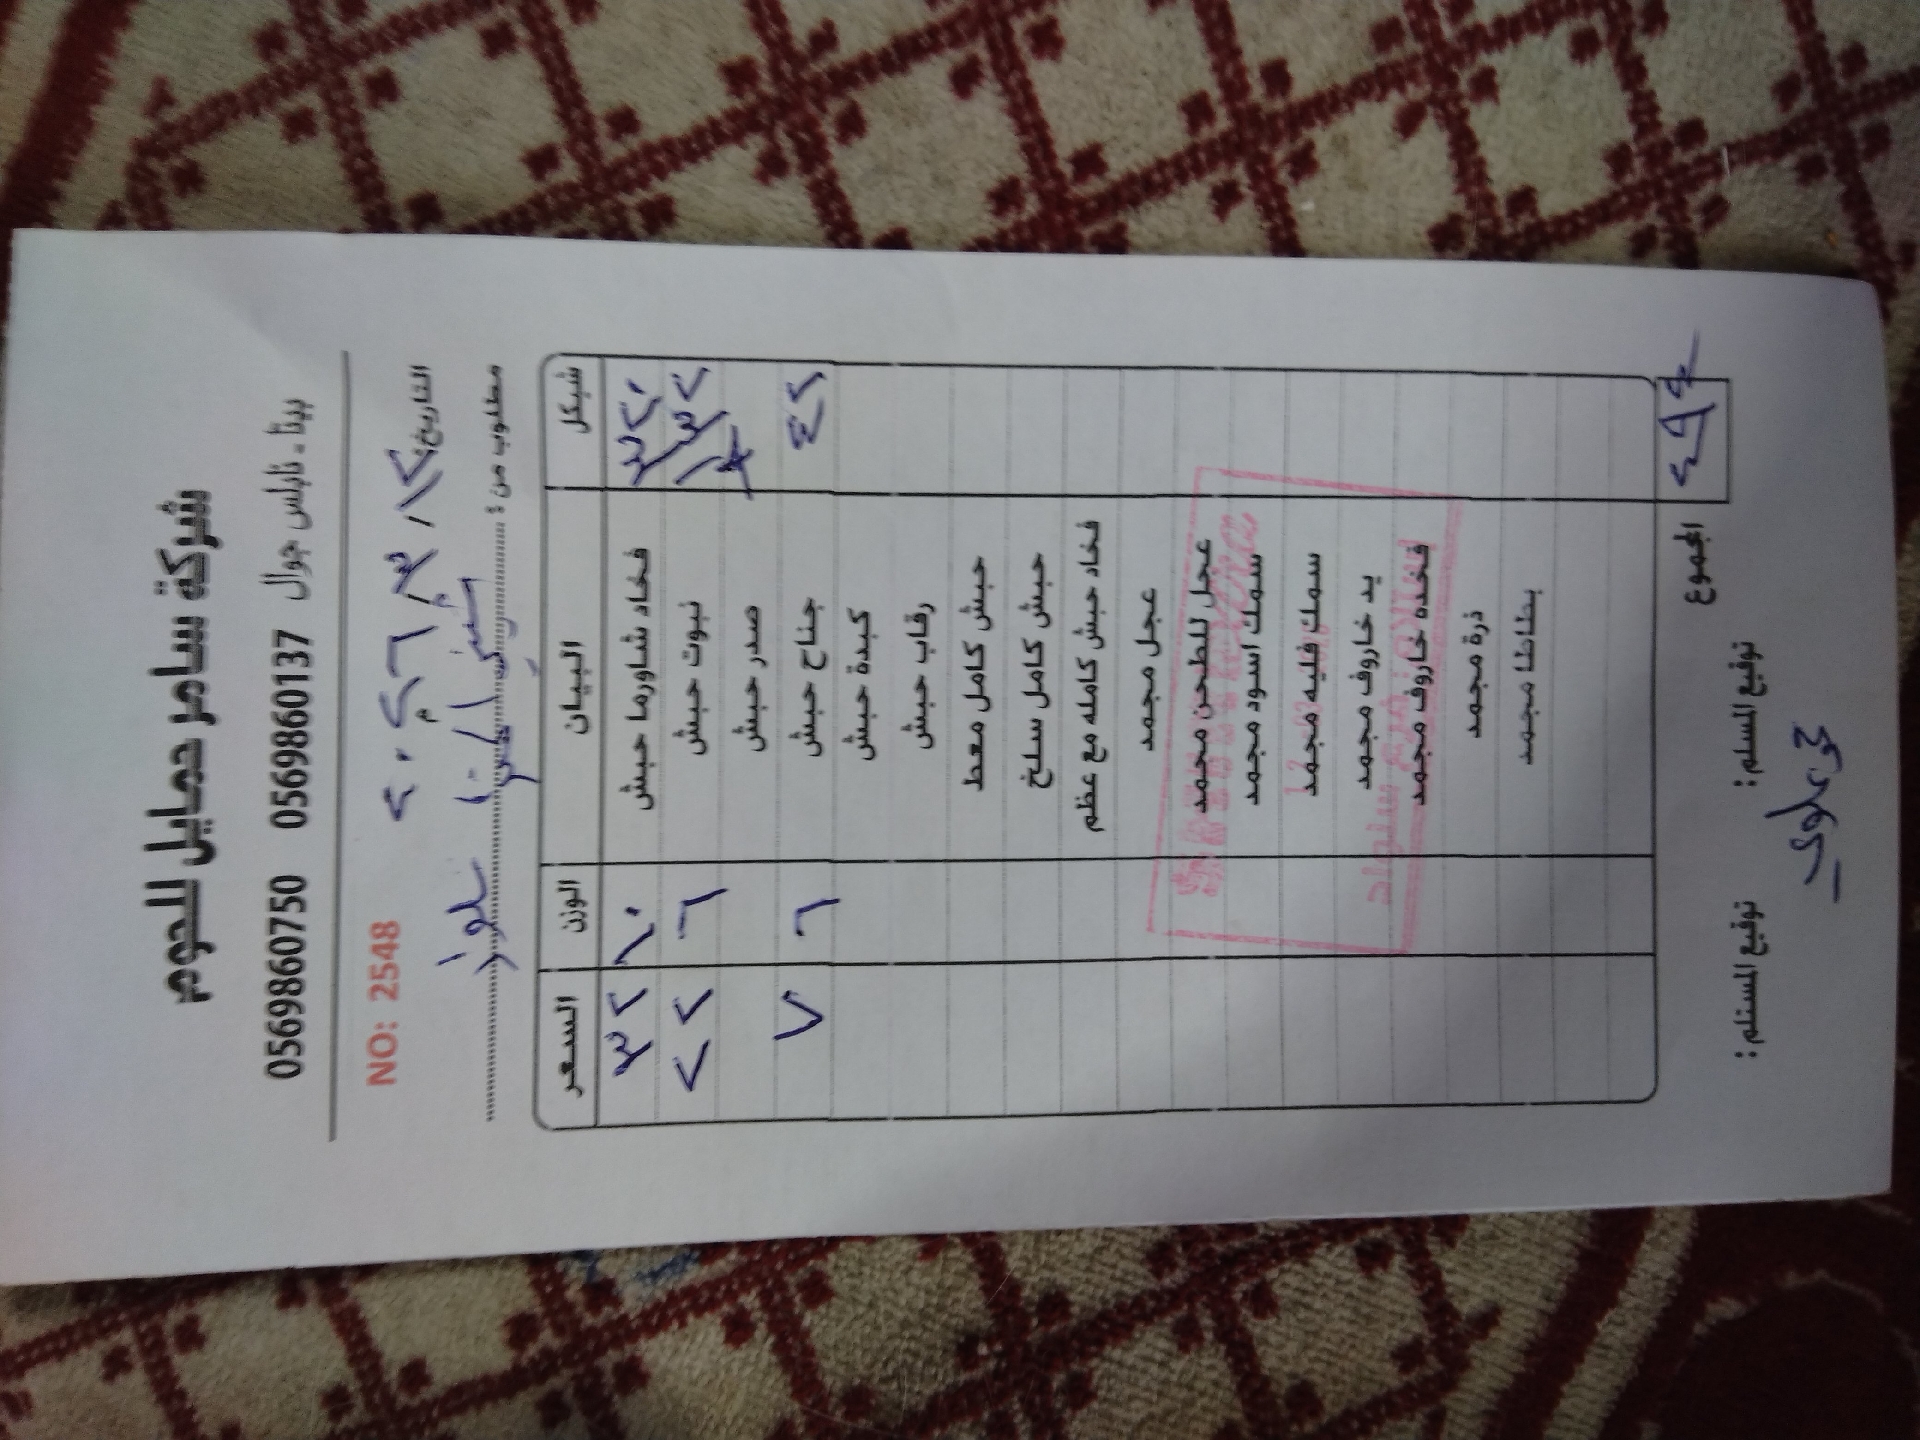 شركة سامر حمايل للحوم
بيتا - نابلس جوال 0569860137 0569860750
التاريخ: ١٢/ ٣/ ٢٠٢٦ NO: 2548
مطلوب من:
السعر الوزن البيان شيكل
٣٢ ١٠ فخاد شاورما حبش ٣٢٠
٢٢ ٦ نبوت حبش ١٣٢
صدر حبش
٧ ٦ جناح حبش ٤٢
كبدة حبش
رقاب حبش
حبش كامل معط
حبش كامل سلخ
فخاد حبش كامله مع عظم
عجل مجمد
عجل للطحن مجمد
سمك اسود مجمد
سمك فليه مجمد
يد خاروف مجمد
فخدة خاروف مجمد
ذرة مجمد
بطاطا مجمد
المجموع ٤٩٤
توقيع المستلم: توقيع المسلم: